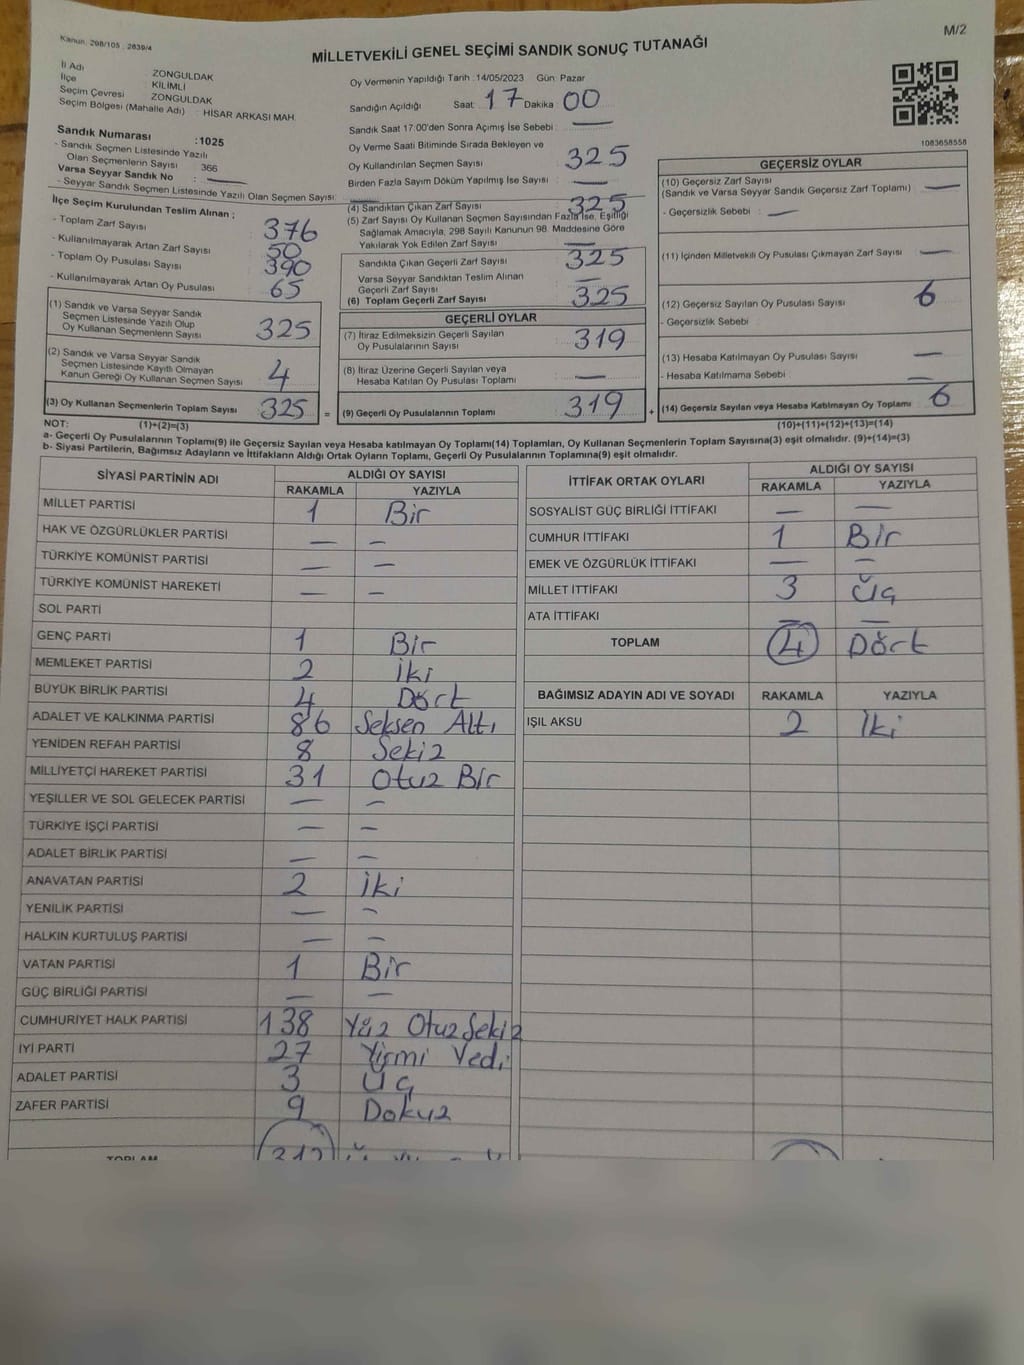 Kanun, 298/105 , 2839/4
M/2
MİLLETVEKİLİ GENEL SEÇİMİ SANDIK SONUÇ TUTANAĞI
İl Adı ZONGULDAK
İlçe KİLİMLİ
Seçim Çevresi ZONGULDAK
Seçim Bölgesi (Mahalle Adı) : HİSAR ARKASI MAH.
Sandık Numarası :1025
- Sandık Seçmen Listesinde Yazılı
Olan Seçmenlerin Sayısı 366
Varsa Seyyar Sandık No : —
- Seyyar Sandık Seçmen Listesinde Yazılı Olan Seçmen Sayısı: —
İlçe Seçim Kurulundan Teslim Alınan ;
- Toplam Zarf Sayısı 376
- Kullanılmayarak Artan Zarf Sayısı 50
- Toplam Oy Pusulası Sayısı 390
- Kullanılmayarak Artan Oy Pusulası 65
(1) Sandık ve Varsa Seyyar Sandık
Seçmen Listesinde Yazılı Olup
Oy Kullanan Seçmenlerin Sayısı 325
(2) Sandık ve Varsa Seyyar Sandık
Seçmen Listesinde Kayıtlı Olmayan
Kanun Gereği Oy Kullanan Seçmen Sayısı 4
(3) Oy Kullanan Seçmenlerin Toplam Sayısı 325 =
Oy Vermenin Yapıldığı Tarih : 14/05/2023 Gün: Pazar
Sandığın Açıldığı Saat : 17 Dakika : 00
Sandık Saat 17:00'den Sonra Açımış İse Sebebi : —
Oy Verme Saati Bitiminde Sırada Bekleyen ve
Oy Kullandırılan Seçmen Sayısı : 325
Birden Fazla Sayım Döküm Yapılmış İse Sayısı : —
(4) Sandıktan Çıkan Zarf Sayısı : 325
(5) Zarf Sayısı Oy Kullanan Seçmen Sayısından Fazla İse, Eşitliği
Sağlamak Amacıyla, 298 Sayılı Kanunun 98. Maddesine Göre
Yakılarak Yok Edilen Zarf Sayısı : —
Sandıkta Çıkan Geçerli Zarf Sayısı : 325
Varsa Seyyar Sandıktan Teslim Alınan
Geçerli Zarf Sayısı : —
(6) Toplam Geçerli Zarf Sayısı : 325
GEÇERLİ OYLAR
(7) İtiraz Edilmeksizin Geçerli Sayılan
Oy Pusulalarının Sayısı : 319
(8) İtiraz Üzerine Geçerli Sayılan veya
Hesaba Katılan Oy Pusulası Toplamı : —
(9) Geçerli Oy Pusulalarının Toplamı : 319 +
1083658558
GEÇERSİZ OYLAR
(10) Geçersiz Zarf Sayısı
(Sandık ve Varsa Seyyar Sandık Geçersiz Zarf Toplamı) : —
- Geçersizlik Sebebi : —
(11) İçinden Milletvekili Oy Pusulası Çıkmayan Zarf Sayısı : —
(12) Geçersiz Sayılan Oy Pusulası Sayısı : 6
- Geçersizlik Sebebi
(13) Hesaba Katılmayan Oy Pusulası Sayısı : —
- Hesaba Katılmama Sebebi : —
(14) Geçersiz Sayılan veya Hesaba Katılmayan Oy Toplamı : 6
NOT: (1)+(2)=(3) (10)+(11)+(12)+(13)=(14)
a- Geçerli Oy Pusulalarının Toplamı(9) ile Geçersiz Sayılan veya Hesaba katılmayan Oy Toplamı(14) Toplamları, Oy Kullanan Seçmenlerin Toplam Sayısına(3) eşit olmalıdır. (9)+(14)=(3)
b- Siyasi Partilerin, Bağımsız Adayların ve İttifakların Aldığı Ortak Oyların Toplamı, Geçerli Oy Pusulalarının Toplamına(9) eşit olmalıdır.
SİYASİ PARTİNİN ADI ALDIĞI OY SAYISI
RAKAMLA YAZIYLA
MİLLET PARTİSİ 1 Bir
HAK VE ÖZGÜRLÜKLER PARTİSİ — —
TÜRKİYE KOMÜNİST PARTİSİ — —
TÜRKİYE KOMÜNİST HAREKETİ — —
SOL PARTİ
GENÇ PARTİ 1 Bir
MEMLEKET PARTİSİ 2 İki
BÜYÜK BİRLİK PARTİSİ 4 Dört
ADALET VE KALKINMA PARTİSİ 86 Seksen Altı
YENİDEN REFAH PARTİSİ 8 Sekiz
MİLLİYETÇİ HAREKET PARTİSİ 31 Otuz Bir
YEŞİLLER VE SOL GELECEK PARTİSİ — —
TÜRKİYE İŞÇİ PARTİSİ — —
ADALET BİRLİK PARTİSİ — —
ANAVATAN PARTİSİ 2 İki
YENİLİK PARTİSİ — —
HALKIN KURTULUŞ PARTİSİ — —
VATAN PARTİSİ 1 Bir
GÜÇ BİRLİĞİ PARTİSİ — —
CUMHURİYET HALK PARTİSİ 138 Yüz Otuz Sekiz
İYİ PARTİ 27 Yirmi Yedi
ADALET PARTİSİ 3 Üç
ZAFER PARTİSİ 9 Dokuz
TOPLAM
İTTİFAK ORTAK OYLARI ALDIĞI OY SAYISI
RAKAMLA YAZIYLA
SOSYALİST GÜÇ BİRLİĞİ İTTİFAKI — —
CUMHUR İTTİFAKI 1 Bir
EMEK VE ÖZGÜRLÜK İTTİFAKI — —
MİLLET İTTİFAKI 3 Üç
ATA İTTİFAKI — —
TOPLAM 4 Dört
BAĞIMSIZ ADAYIN ADI VE SOYADI RAKAMLA YAZIYLA
IŞIL AKSU 2 İki